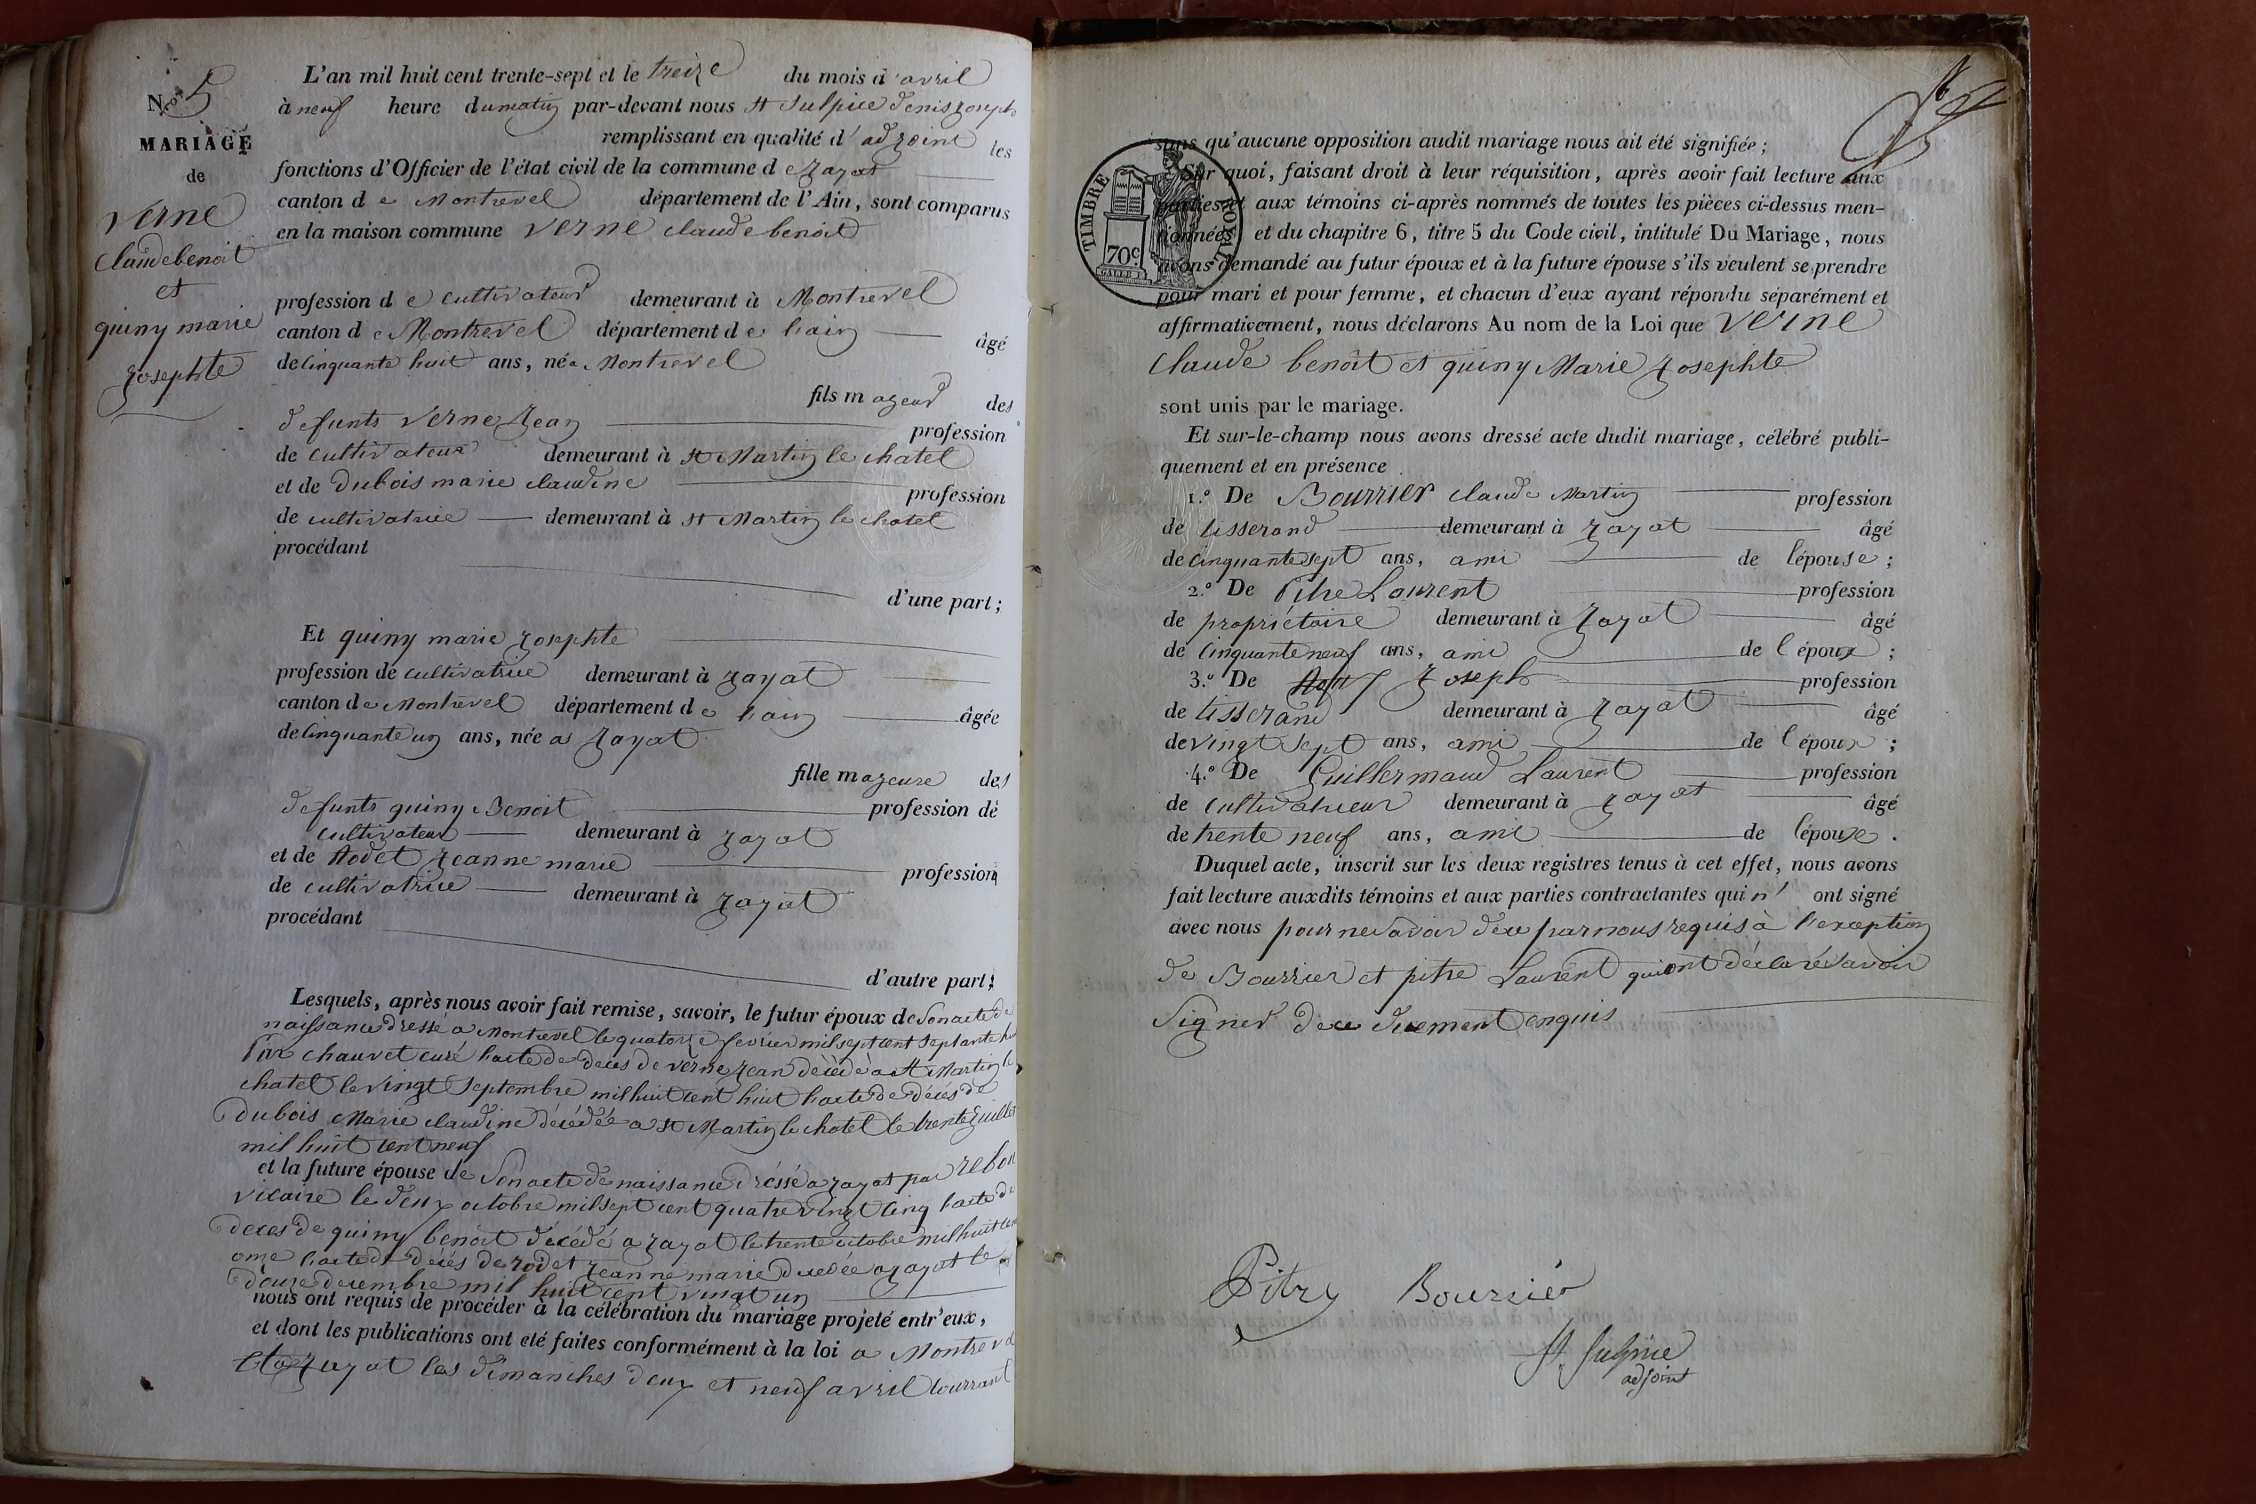 N.ro 5
MARIAGE
de
Verne
Claude benoit
et
quiny marie
Josephte
L'an mil huit cent trente-sept et le treize du mois d'avril
à neuf heure du matin par-devant nous St Sulpice denis Joseph
remplissant en qualité d'adjoint les
fonctions d'Officier de l'état civil de la commune de Jayat
canton de Montrevel département de l'Ain, sont comparus
en la maison commune Verne Claude benoit
profession de cultivateur demeurant à Montrevel
canton de Montrevel département de l'ain âgé
de cinquante huit ans, né a Montrevel
fils majeur des
defunts Verne Jean profession
de cultivateur demeurant à St Martin le chatel
et de Dubois marie claudine profession
de cultivatrice demeurant à St Martin le chatel
procédant
d'une part;
Et quiny marie Josephte
profession de cultivatrice demeurant à Jayat
canton de Montrevel département de l'ain âgée
de cinquante un ans, née a Jayat
fille majeure des
defunts quiny Benoit profession de
cultivateur demeurant à Jayat
et de Rodet Jeanne marie profession
de cultivatrice demeurant à Jayat
procédant
d'autre part;
Lesquels, après nous avoir fait remise, savoir, le futur époux de Son acte de
naissance dressé a Montrevel le quatorze fevrier mil sept cent septante huit
Par chauvet curé l'acte de deces de verne Jean décédé a St Martin le
chatel le vingt Septembre mil huit cent huit l'acte de décés de
Dubois Marie claudine décédée a St Martin le chatel le trente Juillet
mil huit cent neuf
et la future épouse de Son acte de naissance dréssé a Jayat par
vicaire le deux octobre mil sept cent quatre vingt cinq l'acte de
deces de quiny benoit décédé a Jayat le trente octobre mil huit cent
onze l'acte de décés de rodet Jeanne marie decedée a Jayat le
douze decembre mil huit cent vingt un
nous ont requis de procéder à la célébration du mariage projeté entr'eux,
et dont les publications ont été faites conformément à la loi a Montrevel
et a Jayat les dimanches deux et neuf avril courrant
TIMBRE ROYAL
70c.
sans qu'aucune opposition audit mariage nous ait été signifiée;
Sur quoi, faisant droit à leur réquisition, après avoir fait lecture aux
parties et aux témoins ci-après nommés de toutes les pièces ci-dessus men-
tionnées et du chapitre 6, titre 5 du Code civil, intitulé Du Mariage, nous
avons demandé au futur époux et à la future épouse s'ils veulent se prendre
pour mari et pour femme, et chacun d'eux ayant répondu séparément et
affirmativement, nous déclarons Au nom de la Loi que Verne
Claude benoit et quiny Marie Josephte
sont unis par le mariage.
Et sur-le-champ nous avons dressé acte dudit mariage, célébré publi-
quement et en présence
1.º De Bourrier claude Martin profession
de tisserand demeurant à Jayat âgé
de cinquante sept ans, ami de l'épouse;
2.º De Pitre Laurent profession
de propriétaire demeurant à Jayat âgé
de cinquante neuf ans, ami de l'époux;
3.º De Joseph profession
de tisserand demeurant à Jayat âgé
de vingt sept ans, ami de l'époux;
4.º De Guillermaud Laurent profession
de cultivatueur demeurant à Jayat âgé
de trente neuf ans, ami de l'épouse.
Duquel acte, inscrit sur les deux registres tenus à cet effet, nous avons
fait lecture auxdits témoins et aux parties contractantes qui n' ont signé
avec nous pour ne savoir de ce par nous requis à l'exception
de Bourrier et pitre Laurent qui ont déclaré savoir
signer de ce duement enquis
Pitre Bourrier
St Sulpice
adjoint